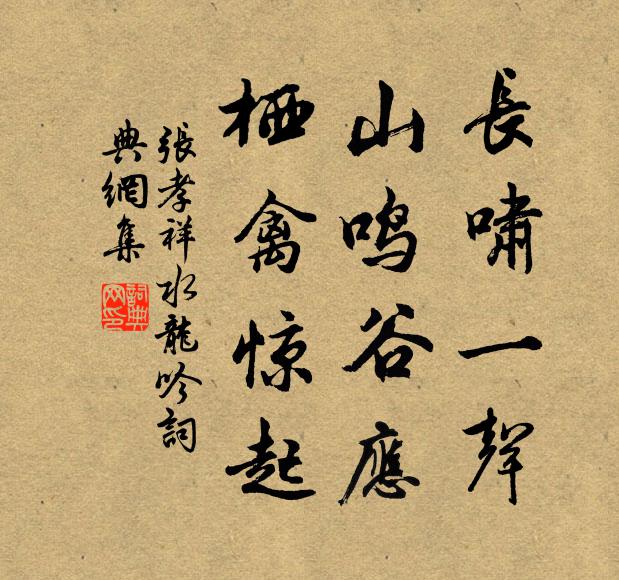 長嘯一聲
山鸣谷應
栖禽惊起
張孝祥水龍吟詞
典網集
詞典网印